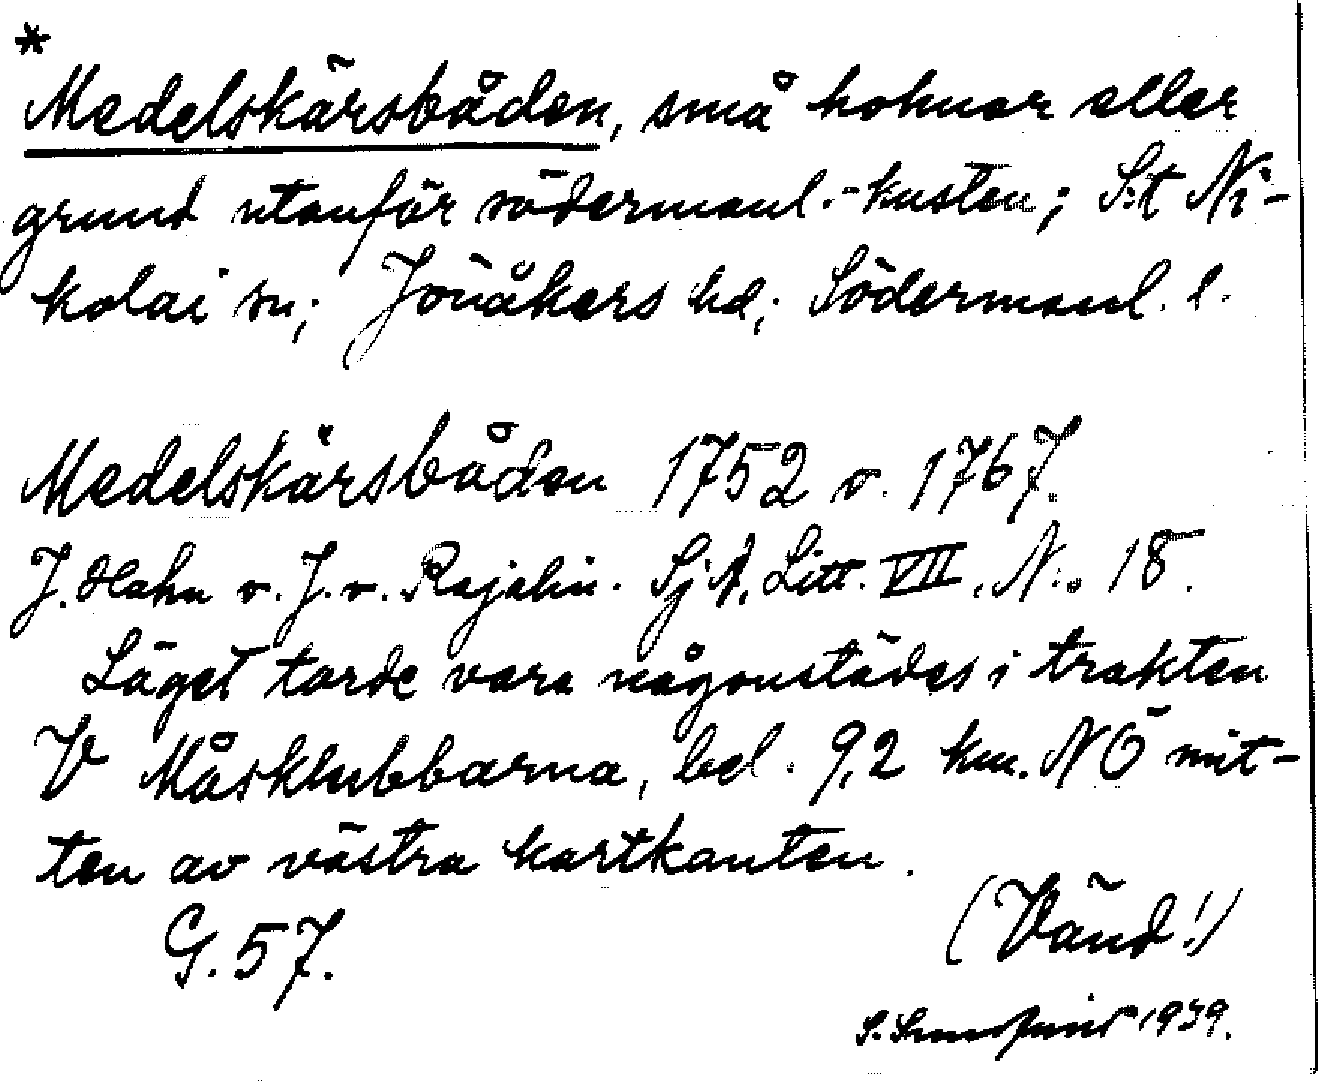 *
Medelskärsbåden, små holmar eller
grund utanför södermanl.-kusten; S:t Ni-
kolai sn; Jönåkers hd; Södermanl. l.
Medelskärsbåden 1752 o. 1767.
J. Hahn o. J. v. Rajalin. SjA, Litt. VII, N:o 18.
Läget torde vara någonstädes i trakten
V Måsklubbarna, bel. 9,2 km. NÖ mit-
ten av västra kartkanten.
G. 57.
(Vänd!)
S. 1939.